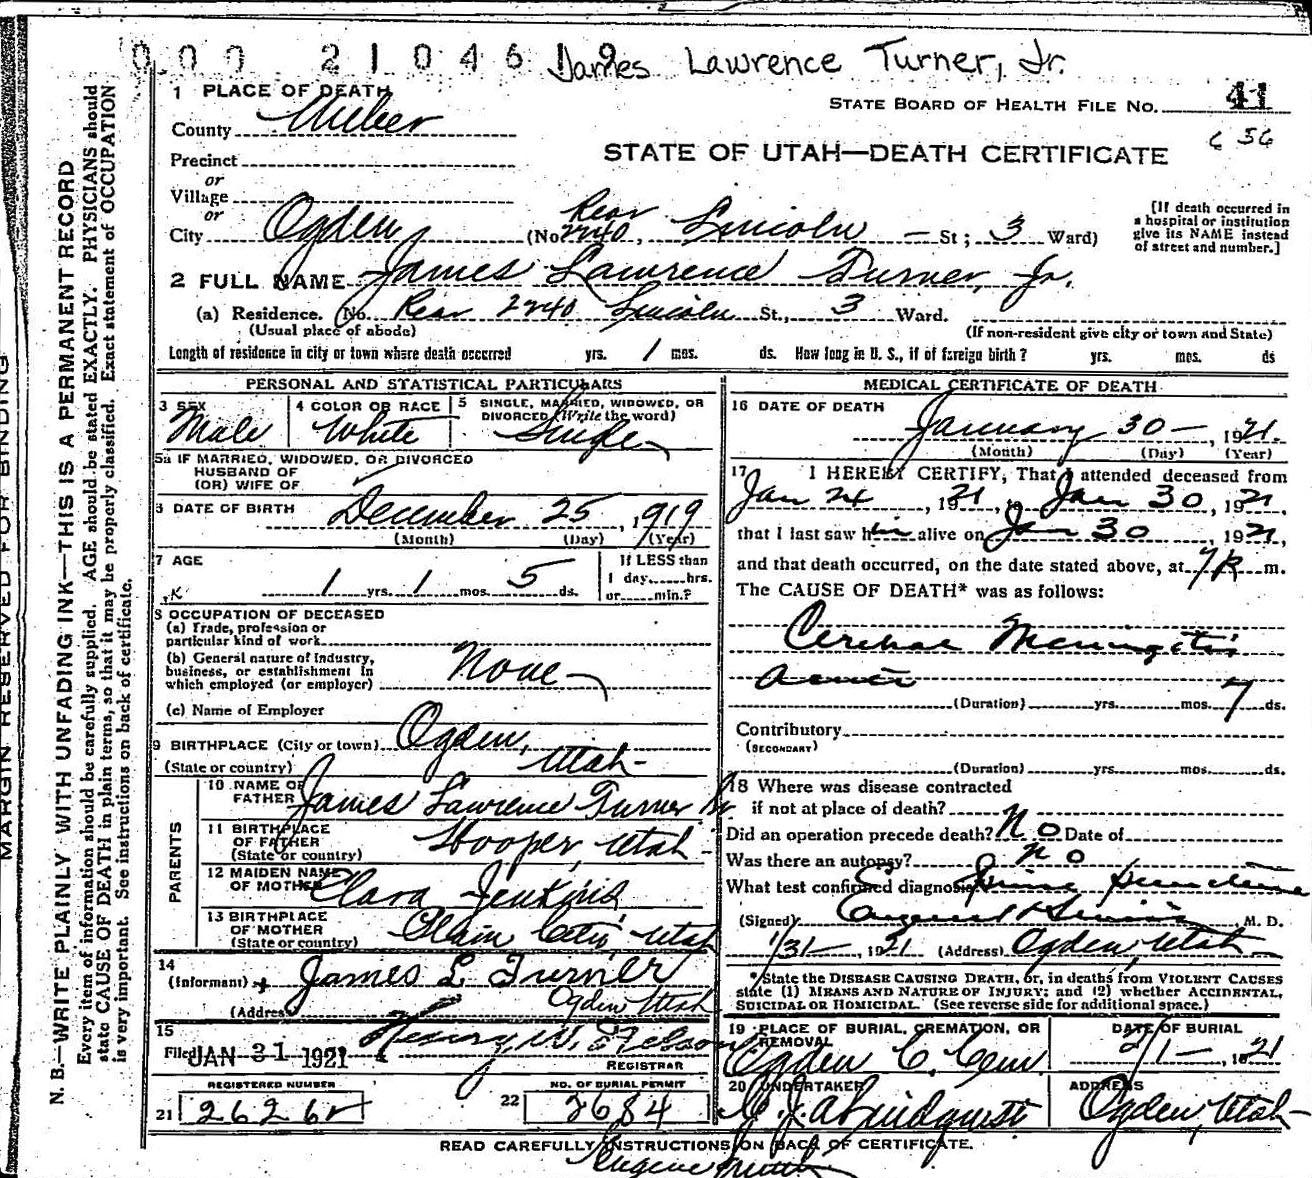 000 21046 19 James Lawrence Turner, Jr.
1 PLACE OF DEATH
STATE BOARD OF HEALTH FILE NO. 41
County Weber
6 56
Precinct
STATE OF UTAH—DEATH CERTIFICATE
or
Village
or
City Ogden (No. Rear 2240, Lincoln — St; 3 Ward)
[If death occurred in
a hospital or institution
give its NAME instead
of street and number.]
2 FULL NAME James Lawrence Turner, Jr.
(a) Residence. (No. Rear 2240 Lincoln St., 3 Ward.
(Usual place of abode) (If non-resident give city or town and State)
Length of residence in city or town where death occurred yrs. 1 mos. ds. How long in U. S., if of foreign birth? yrs. mos. ds
PERSONAL AND STATISTICAL PARTICULARS
3 SEX Male
4 COLOR OR RACE White
5 SINGLE, MARRIED, WIDOWED, OR
DIVORCED (Write the word)
Single
5a IF MARRIED, WIDOWED, OR DIVORCED
HUSBAND OF
(OR) WIFE OF
6 DATE OF BIRTH December 25, 1919
(Month) (Day) (Year)
7 AGE
1 yrs. 1 mos. 5 ds.
If LESS than
1 day......hrs.
or......min.?
8 OCCUPATION OF DECEASED
(a) Trade, profession or
particular kind of work
(b) General nature of industry,
business, or establishment in
which employed (or employer) None
(c) Name of Employer
9 BIRTHPLACE (City or town) Ogden,
(State or country) Utah-
PARENTS
10 NAME OF
FATHER James Lawrence Turner
11 BIRTHPLACE
OF FATHER Hooper, Utah-
(State or country)
12 MAIDEN NAME
OF MOTHER Clara Jenkins
13 BIRTHPLACE
OF MOTHER Plain City, Utah
(State or country)
14
(Informant) James L Turner
(Address Ogden Utah
15
Filed JAN 31 1921 Henry W.
REGISTRAR
REGISTERED NUMBER
21
NO. OF BURIAL PERMIT
22 2684
MEDICAL CERTIFICATE OF DEATH
16 DATE OF DEATH
January 30 —, 1921.
(Month) (Day) (Year)
17 I HEREBY CERTIFY, That I attended deceased from
Jan 24, 1921, to Jan 30, 1921,
that I last saw him alive on Jan 30, 1921,
and that death occurred, on the date stated above, at 7P m.
The CAUSE OF DEATH* was as follows:
Cerebral Meningitis
acute
(Duration) yrs. mos. 7 ds.
Contributory
(SECONDARY)
(Duration) yrs. mos. ds.
18 Where was disease contracted
if not at place of death?
Did an operation precede death? No Date of
Was there an autopsy? no
What test confirmed diagnosis? Spine Puncture
(Signed) Eugene H Smith M. D.
1/31—, 1921 (Address) Ogden, Utah
*State the DISEASE CAUSING DEATH, or, in deaths from VIOLENT CAUSES
state (1) MEANS AND NATURE OF INJURY; and (2) whether ACCIDENTAL,
SUICIDAL OR HOMICIDAL. (See reverse side for additional space.)
19 PLACE OF BURIAL, CREMATION, OR
REMOVAL
Ogden C. Cem
DATE OF BURIAL
2/1—, 1921
20 UNDERTAKER
Lindquist
ADDRESS
Ogden, Utah-
READ CAREFULLY INSTRUCTIONS ON BACK OF CERTIFICATE.
Eugene Smith
MARGIN RESERVED FOR BINDING
N. B.—WRITE PLAINLY WITH UNFADING INK—THIS IS A PERMANENT RECORD
Every item of information should be carefully supplied. AGE should be stated EXACTLY. PHYSICIANS should
state CAUSE OF DEATH in plain terms, so that it may be properly classified. Exact statement of OCCUPATION
is very important. See instructions on back of certificate.